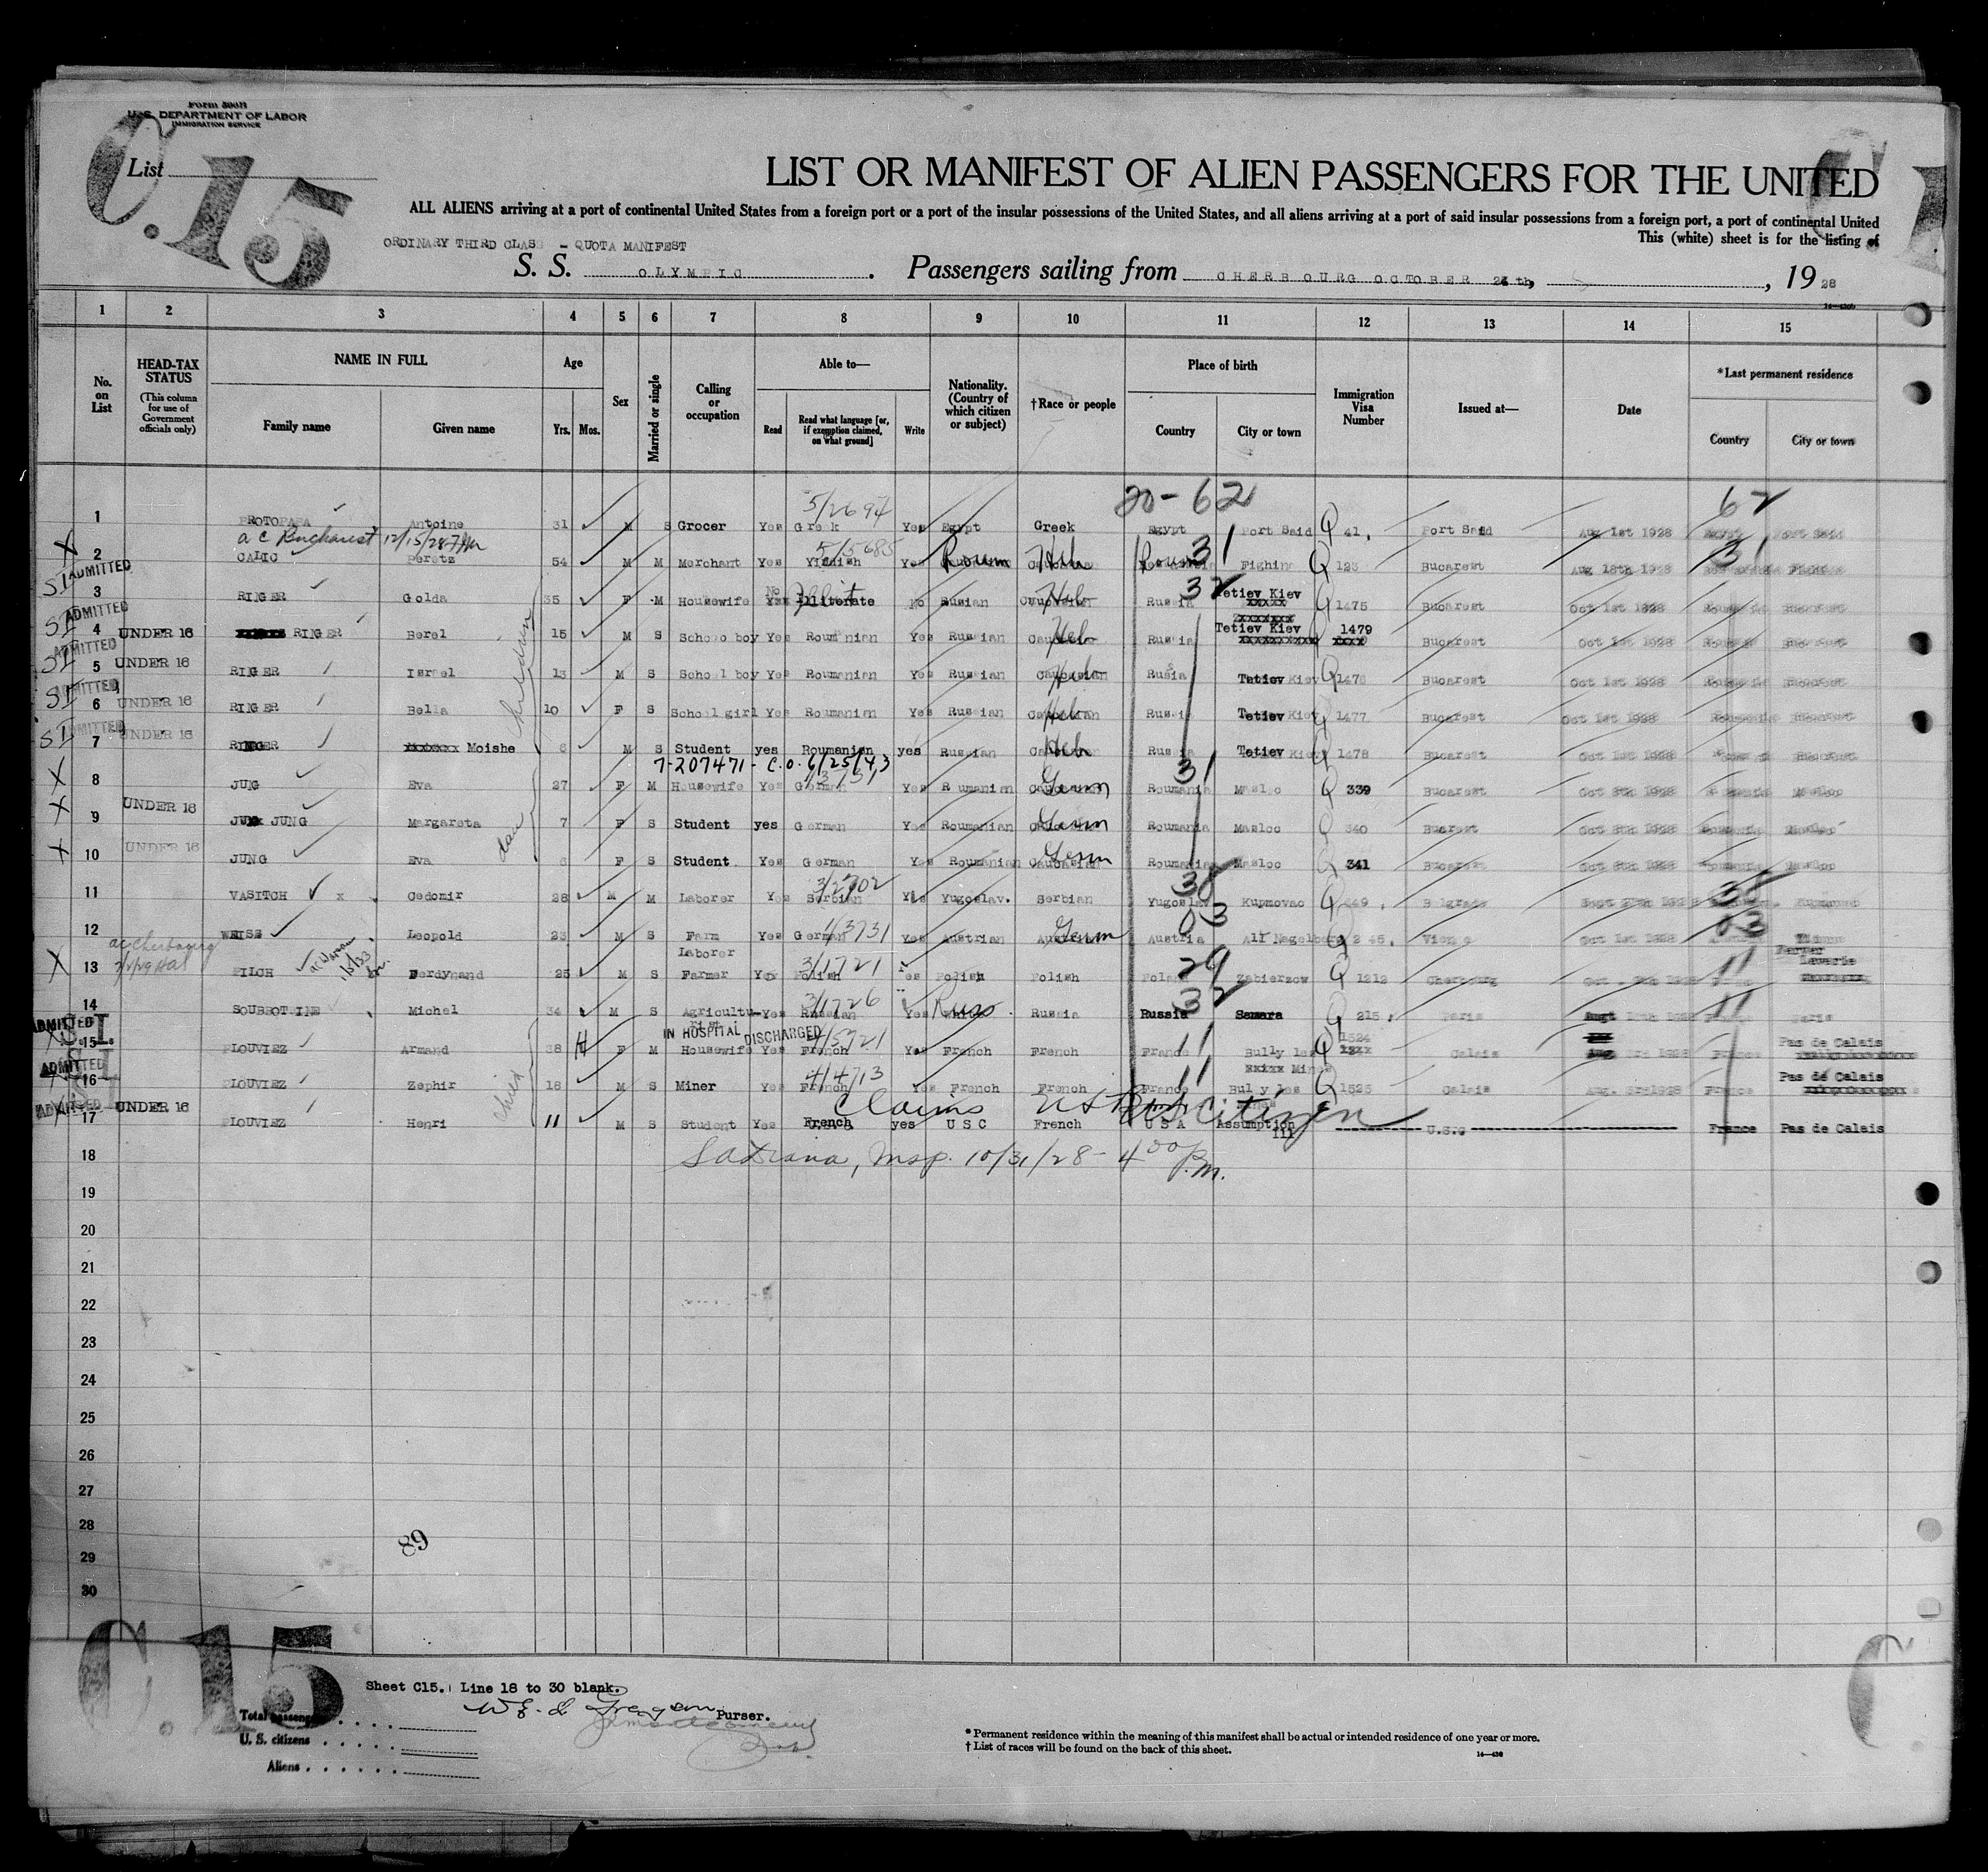 Form 500B
U. S. DEPARTMENT OF LABOR
IMMIGRATION SERVICE
List
C.15
LIST OR MANIFEST OF ALIEN PASSENGERS FOR THE UNITED
ALL ALIENS arriving at a port of continental United States from a foreign port or a port of the insular possessions of the United States, and all aliens arriving at a port of said insular possessions from a foreign port, a port of continental United
This (white) sheet is for the listing of
ORDINARY THIRD CLASS - QUOTA MANIFEST
S. S. OLYMPIC. Passengers sailing from CHERBOURG OCTOBER 24th, , 1928
1 2 3 4 5 6 7 8 9 10 11 12 13 14 15
No. on List
HEAD-TAX STATUS (This column for use of Government officials only)
NAME IN FULL
Family name Given name
Age Yrs. Mos.
Sex
Married or single
Calling or occupation
Able to—
Read Read what language [or, if exemption claimed, on what ground] Write
Nationality. (Country of which citizen or subject)
†Race or people
Place of birth
Country City or town
Immigration Visa Number
Issued at—
Date
*Last permanent residence
Country City or town
20-62 62
5/2694
1 PROTOPAPA Antoine 31 M S Grocer Yes Greek Yes Egypt Greek Egypt Port Said Q 41, Port Said Aug 1st 1928 Egypt Port Said
a c Bucharest 12/15/28
5/5685
X 2 CALIC Peretz 54 M M Merchant Yes Yiddish Yes Roum Heb Roum 31 Q 123 Bucarest Aug 18th 1928 31
SI ADMITTED 3 RINGER Golda 35 F M Housewife No Illiterate No Rusian Heb Russia 32 Tetiev Kiev Q 1475 Bucarest Oct 1st 1928 Roumania Bucarest
SI ADMITTED 4 UNDER 16 RINGER Berel 15 M S School boy Yes Roumanian Yes Russian Heb Russia Tetiev Kiev 1479 Bucarest Oct 1st 1928 Roumania Bucarest
SI ADMITTED 5 UNDER 16 RINGER Israel 13 M S School boy Yes Roumanian Yes Russian Heb Rusia Tetiev Kiev Q 1476 Bucarest Oct 1st 1928 Roumania Bucarest
SI ADMITTED 6 UNDER 16 RINGER Bella 10 F S School girl Yes Roumanian Yes Russian Heb Russia Tetiev Kiev 1477 Bucarest Oct 1st 1928 Roumania Bucarest
SI ADMITTED 7 UNDER 16 RINGER Moishe 6 M S Student yes Roumanian yes Russian Heb Russia Tetiev Kiev 1478 Bucarest Oct 1st 1928 Roumania Bucarest
children
7-207471 - C.O. 6/25/43
X 8 JUNG Eva 27 F M Housewife Yes German Yes Roumanian Germ Roumania 31 Masloc Q 339 Bucarest Oct 8th 1928 Roumania Masloc
X 9 UNDER 16 JUNG Margareta 7 F S Student yes German Yes Roumanian Germ Roumania Masloc Q 340 Bucarest Oct 8th 1928 Roumania Masloc
X 10 UNDER 16 JUNG Eva 6 F S Student Yes German Yes Roumanian Germ Roumania Masloc Q 341 Bucarest Oct 8th 1928 Roumania Masloc
dau
3/2702
11 VASITCH x Cedomir 28 M M Laborer Yes Serbian Yes Yugoslav. Serbian Yugoslav Kupmovac Q 449, Belgrade
12 WEISZ Leopold 23 M S Farm Laborer Yes German 1/3731 Yes Austrian Germ Austria 03 Q 2 45, Vienna Oct 1st 1928 Austria 03 Vienna
ac Cherbourg
X 13 PILCH Ferdynand 25 M S Farmer Yes Polish 3/1721 Yes Polish Polish Poland 29 Zabierzow Q 1212 Cherbourg 11
14 SOUBBOTINE Michel 34 M S Agricultu- Yes Russian 3/1726 Yes Russ Russia Russia 32 Samara Q 215, Paris 1928 France 11 Paris
IN HOSPITAL DISCHARGED
ADMITTED S.I. 15 PLOUVIEZ Armand 38 F M Housewife Yes French 4/5721 Yes French French France 11 Bully les Mines Q 1524 Calais 1928 France Pas de Calais
ADMITTED S.I. 16 PLOUVIEZ Zephir 18 M S Miner Yes French 4/4713 Yes French French France 11 Bully les Q 1525 Calais Aug. 3rd 1928 France Pas de Calais
child
Claims U.S. Citizen
ADMITTED 17 UNDER 16 PLOUVIEZ Henri 11 M S Student Yes French yes U S C French U S A Assumption Ill U.S.C France Pas de Calais
18 10/31/28 - 4 00 P.M.
19
20
21
22
23
24
25
26
27
28
29
30
89
C.15
Sheet C15. Line 18 to 30 blank.
Purser.
Total passengers
U. S. citizens
Aliens
* Permanent residence within the meaning of this manifest shall be actual or intended residence of one year or more.
† List of races will be found on the back of this sheet.
14—430